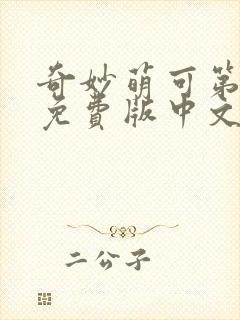 奇妙萌可第
免费版中文
二公子